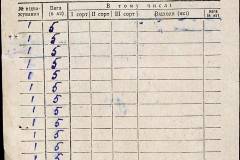 В тому числі
№ відва-
жування
Вага
(в кг)
I сорт
II сорт
III сорт
Відходи (які)
вага
(в кг)
1 5
1 5
1 5
1 5
1 5
1 5
1 5
1 5
1 5
1 5
1 5